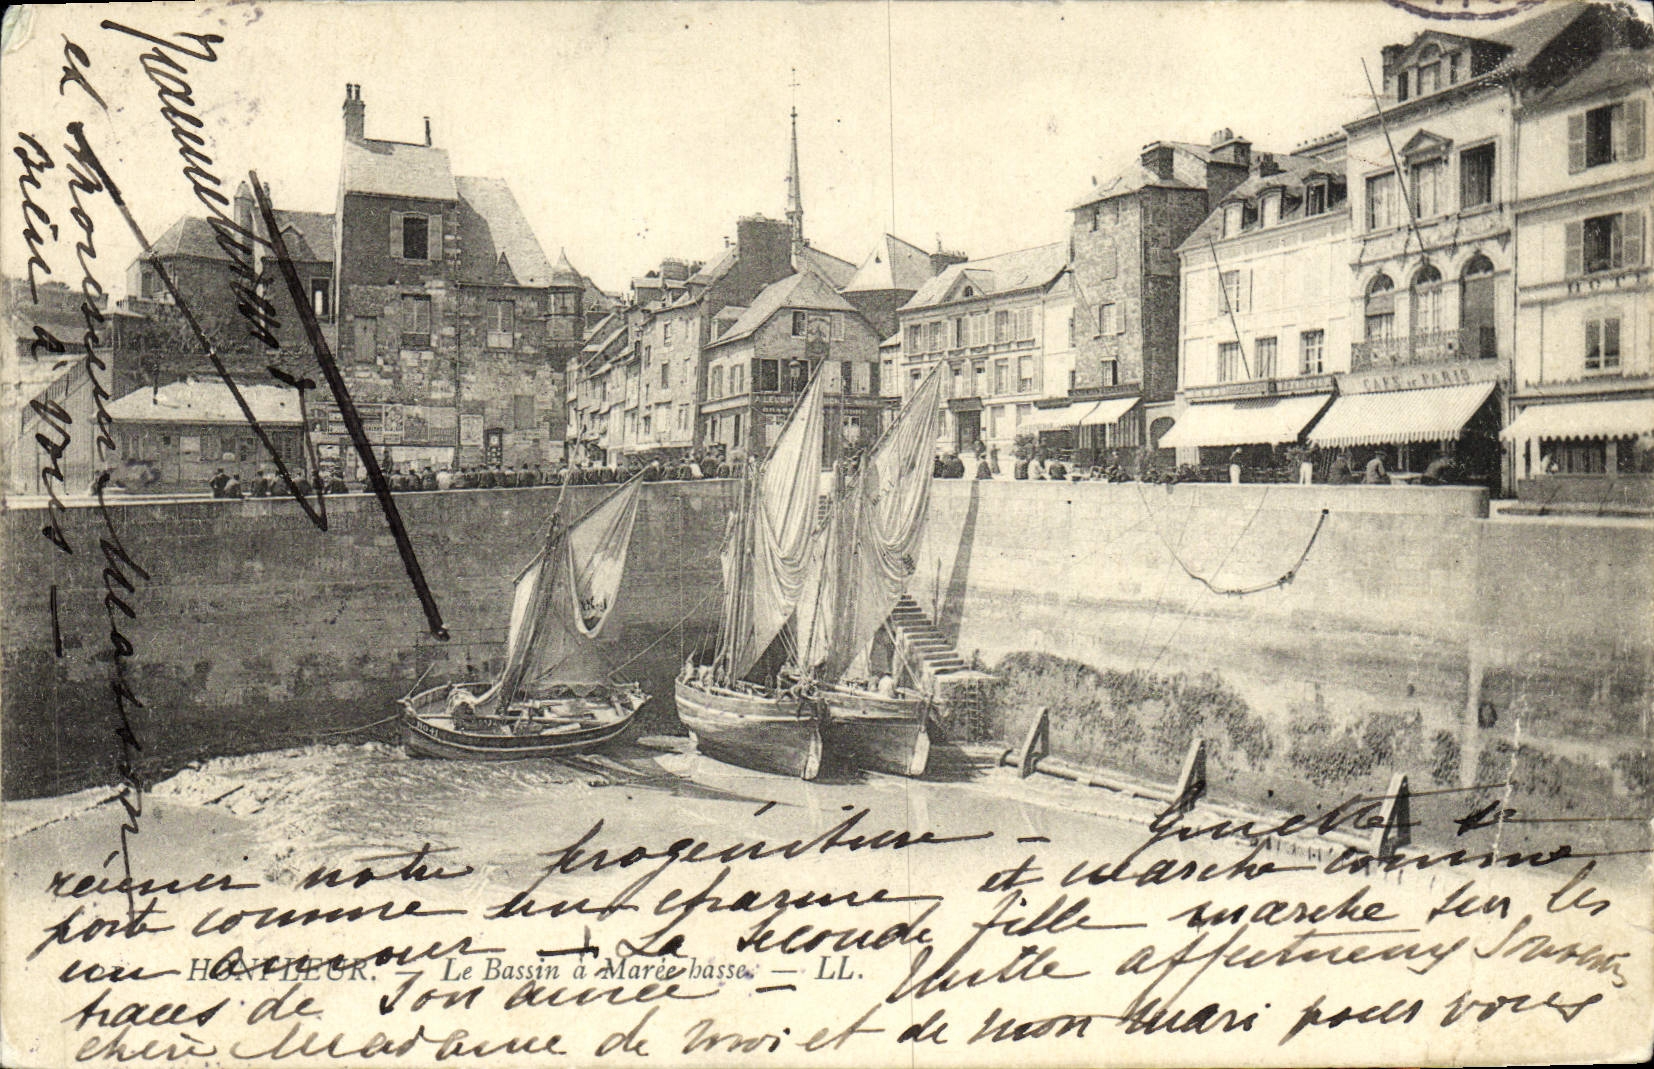 CAFE DE PARIS
réunir notre progéniture — Ginette se
porte comme un charme et marche comme
un amour — La seconde fille marche sur les
HONFLEUR. — Le Bassin à Marée basse. — LL.
traces de son aînée — Mille affectueux souvenirs
chère Madame de moi et de mon mari pour vous
et Monsieur Masson
Bien à vous —